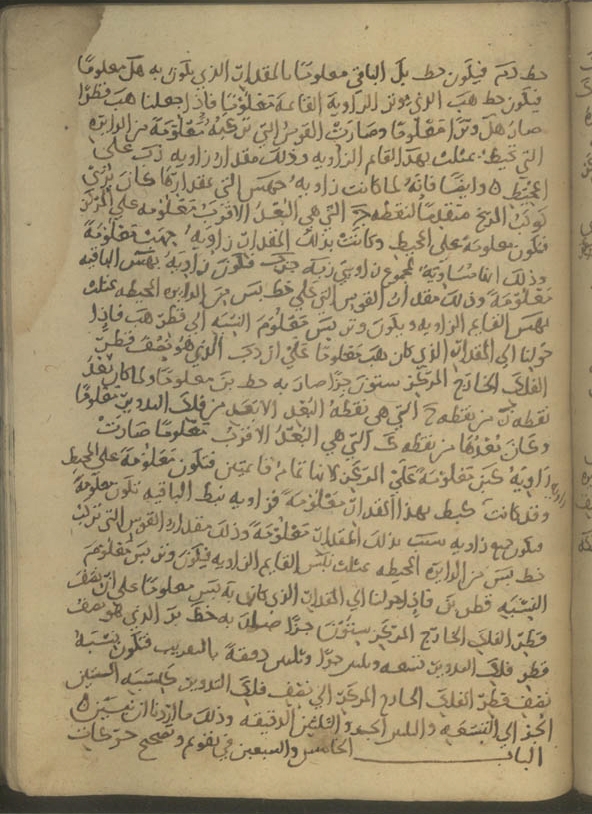 خط دم فيكون خط بل الباقي معلومًا بالمقدار الذي يكون به هل معلومًا
فيكون خط هب الذي يوتر الزاوية القائمة معلومًا فاذا جعلنا هب قطرًا
صار هل وترًا معلومًا وصارت القوس التي توتره معلومة من الدايره
التي تحيط بمثلث بهل القايم الزاويه وذلك مقدار زاويه دب على
المحيط ٥ وايضًا فانه لما كانت زاويه حهس التي بمقدارها كان يُرى
كوكب المريخ متقدمًا لنقطه ح التي هي البُعدُ الاقرب معلومه على المركز
فتكون معلومة على المحيط وكانت بذلك المقدار زاويه معلومة
وذلك انها مساوية لمجموع زاويتي فتكون زاوية بهس الباقيه
معلومة وذلك مقدار القوس التي على خط بس من الدايره المحيطه بمثلث
بهس القايم الزاويه ويكون وتر بس معلوم النسبه الى قطر هب فاذا
حولنا الى المقدار الذي كان هب معلومًا على ان دب الذي هو نصف قطر
الفلك الخارج المركز ستون جزًا صار به خط بن معلومًا ولما كان بُعدُ
نقطه ن من نقطه ح التي هي نقطه البُعد الابعد من فلك التدوير معلومًا
وكان بُعدُها من نقطه ك التي هي البُعد الاقرب معلومًا صارت
زاوية كبن معلومة على المركز لانها تمام قائمتين فتكون معلومة على المحيط
وقد كانت كبط بهذا المقدار معلومة فزاويه نبط الباقيه تكون معلومة
فتكون جميع زاويه بذلك المقدار معلومة وذلك مقدار القوس التي توتر
خط بس من الدايره المحيطه بمثلث نبس القايم الزاويه فيكون وتر بس معلوم
النسبه قطر بن فاذا حولنا الى المقدار الذي كان به بس معلومًا على ان نصف
قطر الفلك الخارج المركز ستون جزًا صار به خط بن الذي هو نصف
قطر فلك التدوير تسعه وثلثين جزًا وثلثين دقيقةً بالتقريب فتكون نسبة
نصف قطر الفلك الخارج المركز الى نصف فلك التدوير كنسبه الستين
الجز الى التسعه والثلثين الجز والثلثين الدقيقه وذلك ما اردنا ان نبين ٥
الباب الخامس والسبعين في تقويم وتصحيح حركات